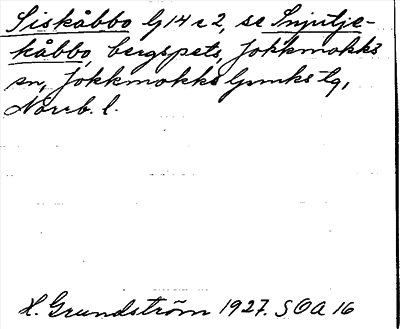 Siskåbbo lj 14 c 2, se Snjutje-
kåbbo, bergspets, Jokkmokks
sn, Jokkmokks lpmks tg,
Norrb. l.
H. Grundström 1927. SOA 16